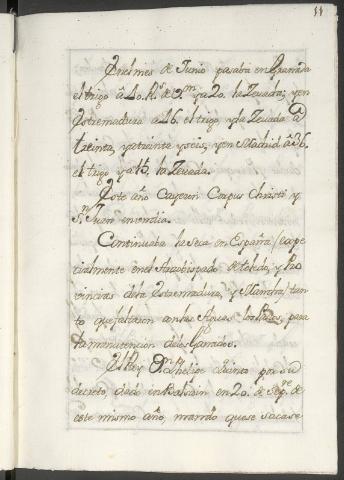 11
En el mes de Junio pasaba en Granada
el trigo â 40. Rs de Von ya 20. la Zevada; y en
Estremadura a 46. el trigo y la Zevada a
treinta, y a treinta y seis, y en Madrid â 36.
el trigo y a 15. la Zevada.
Este año Cayeron Corpus Christi y
Sn Juan en un dia.
Continuaba la Seca en España (espe
cialmente en el Arzobispado de toledo, y Pro
vincias de la Estremadura, y Mancha) tan
to que faltaron en las Aguas los Pastos, para
la manutencion de los Ganados.
El Rey Dn Phelipe Quinto por su
decreto, dado en Balsain en 20. de Sepre de
este mismo año, mandò que se sacase